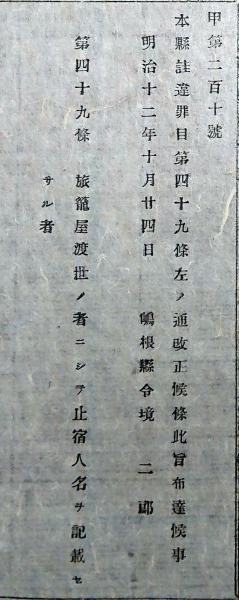 甲第二百十號
本縣註違罪目第四十九條左ノ通改正候條此旨布達候事
明治十二年十月廿四日　嶋根縣令境　二郎
第四十九條　旅籠屋渡世ノ者ニシテ止宿人名ヲ記載セ
サル者